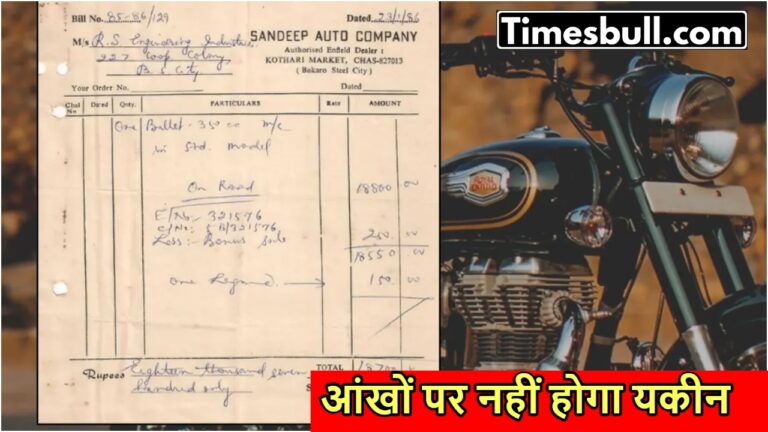 Timesbull.com
Bill No. 85-86/129
Dated 23/1/86
SANDEEP AUTO COMPANY
Authorised Enfield Dealer :
KOTHARI MARKET, CHAS-827013
( Bokaro Steel City )
M/s R.S. Engineering Industries
227 Coop Colony
B.S. City
Your Order No. Dated
Chal No Dated Qnty. PARTICULARS Rate AMOUNT
One Bullet - 350 cc m/c
in Std. Model
On Road 18800 00
E/No:- 321576
C/No: 5B/321576
Less:- Bonus 250 00
18550 00
One Legguard 150 00
Rupees Eighteen thousand seven TOTAL 18700
hundred only
ROYAL ENFIELD
आंखों पर नहीं होगा यकीन